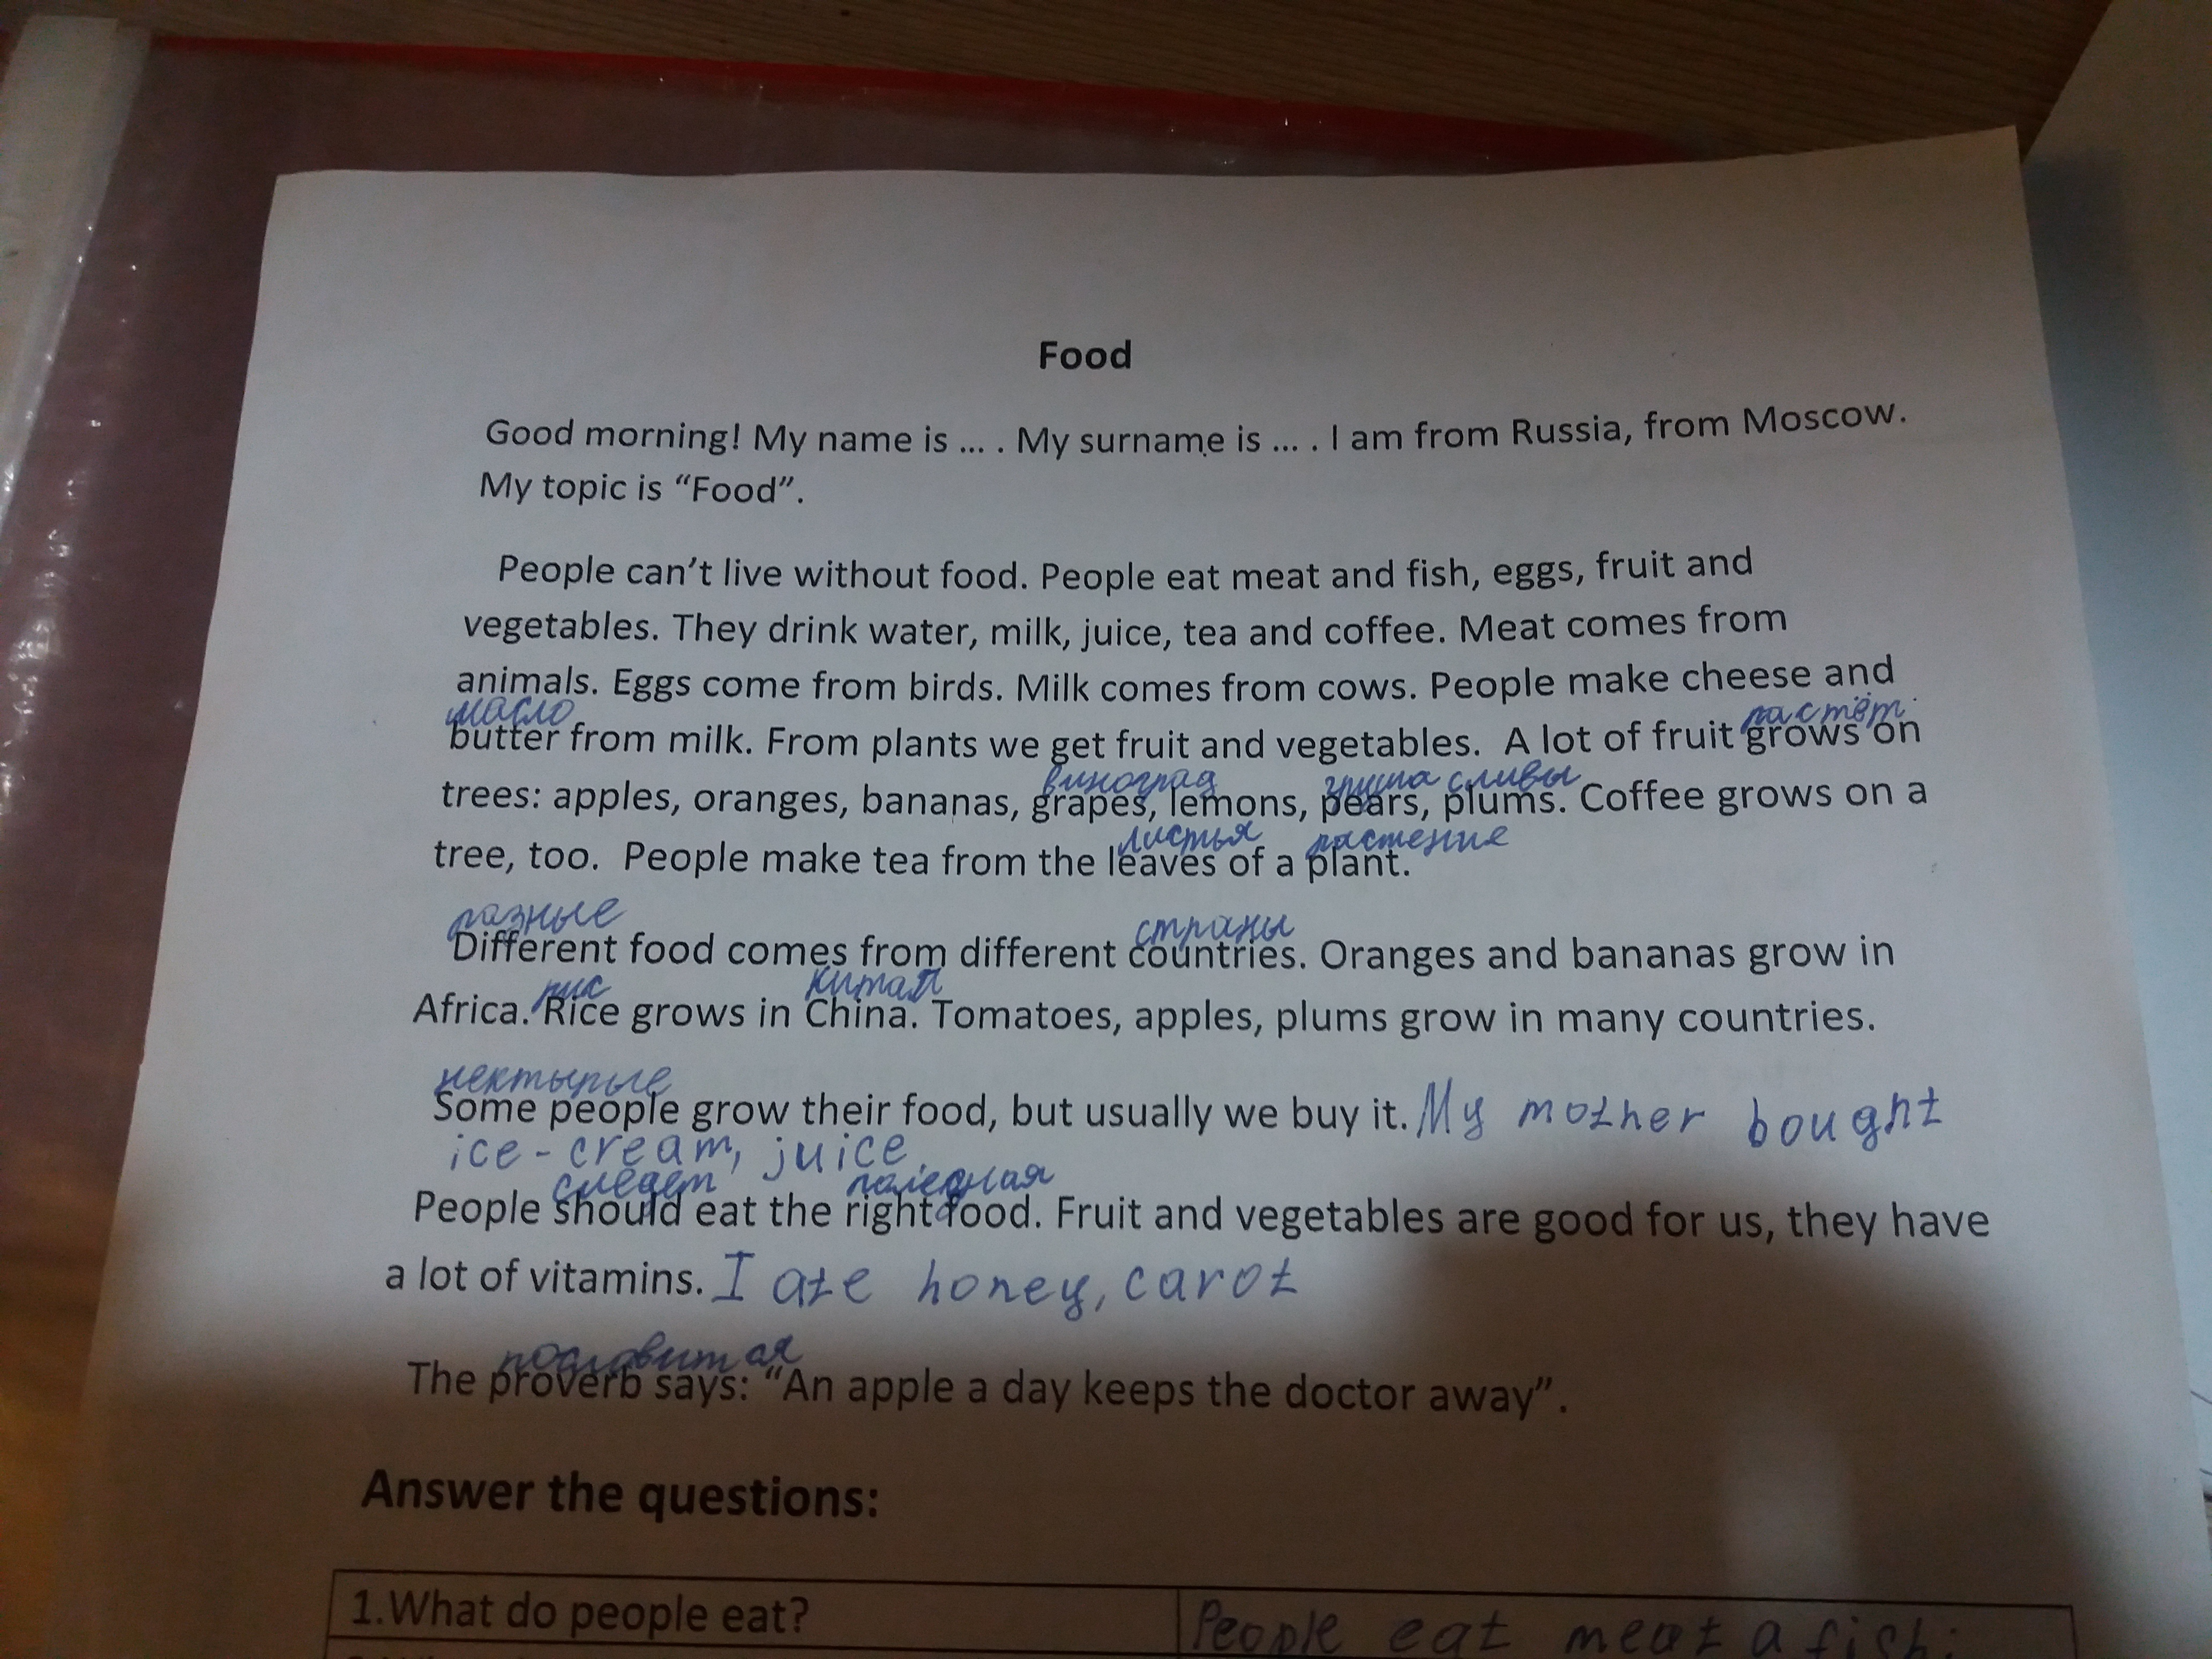 Food
Good morning! My name is ... . My surname is ... . I am from Russia, from Moscow.
My topic is “Food”.
People can’t live without food. People eat meat and fish, eggs, fruit and
vegetables. They drink water, milk, juice, tea and coffee. Meat comes from
animals. Eggs come from birds. Milk comes from cows. People make cheese and
масло растёт
butter from milk. From plants we get fruit and vegetables. A lot of fruit grows on
виноград груша сливы
trees: apples, oranges, bananas, grapes, lemons, pears, plums. Coffee grows on a
листья растение
tree, too. People make tea from the leaves of a plant.
разные страны
Different food comes from different countries. Oranges and bananas grow in
рис Китай
Africa. Rice grows in China. Tomatoes, apples, plums grow in many countries.
нектырые
Some people grow their food, but usually we buy it. My mother bought
ice-cream, juice
следет
People should eat the right food. Fruit and vegetables are good for us, they have
a lot of vitamins. I ate honey, carot
The proverb says: “An apple a day keeps the doctor away”.
Answer the questions:
1.What do people eat? People eat meat a fish;